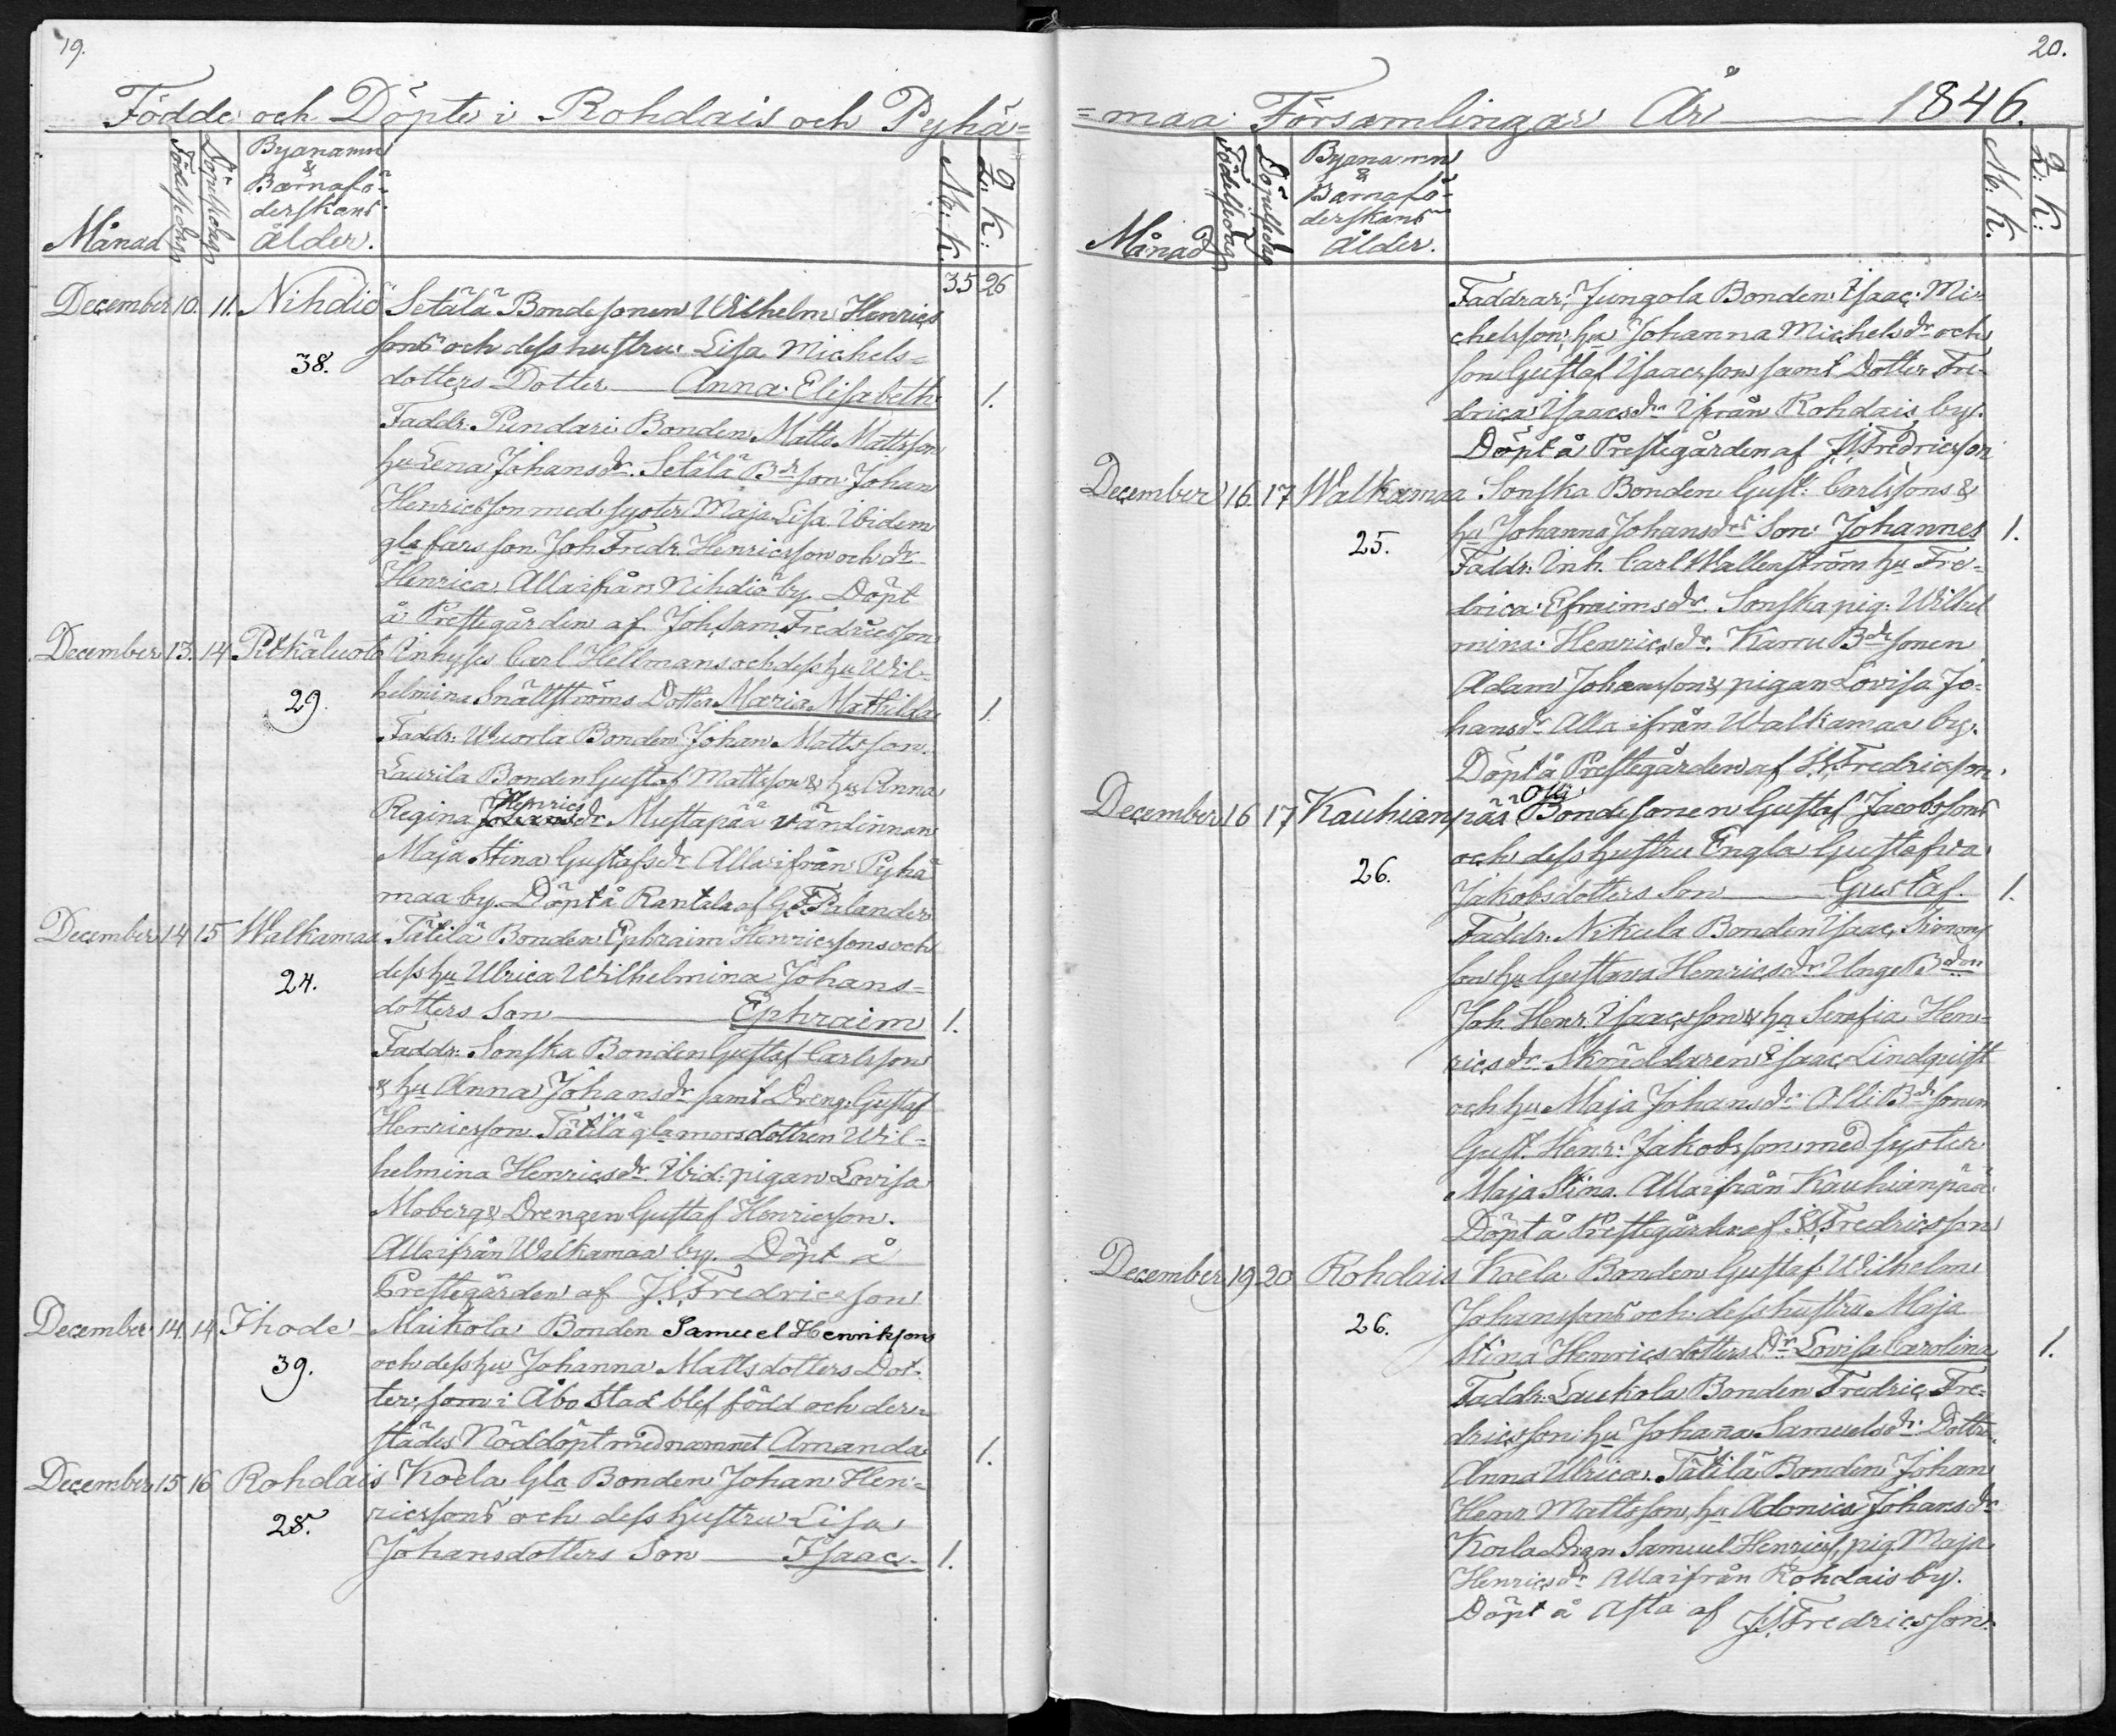 19.
Födde och Döpte i Rohdais och Pyhä=
Månad
Födelsedag
Döpelsedag
Byanamn
&
Barnafö-
derskans
ålder.
M. K.
Q. K:
35 26
December 10. 11. Nihdiö Setälä Bondesonen Wilhelm Henrics
sons och dess hustru Lisa Michels=
38.
dotters Dotter Anna Elisabeth 1.
Faddr: Pundari Bonden Matts Mattsson
hu Lena Johansdr. Setälä Bdeson Johan
Henricsson med syster Maja Lisa Ibidem
gla fars son Joh Fredr Henricsson och dr
Henrica. Alla ifrån Nihdiö by. Döpt
å Prestegården af Joh. Sam. Fredricsson
December 13. 14 Pitkäluoto Inhyses Carl Hellmans och dess hu Wil-
helmina Snällströms Dotter Maria Mathilda 1.
29.
Faddr: Wuorla Bonden Johan Mattsson.
Laurila Bonden Gustaf Mattsson & hu Anna
Henrics
Regina Johansdr Mustapää värdinnan
Maja Stina Gustafsdr Alla ifrån Pyhä
maa by. Döpt å Rantala af G. F. Palander
December 14 15 Walkamaa Tätilä Bonden Ephraim Henricssons och
dess hu Ulrica Wilhelmina Johans=
24.
dotters Son Ephraim 1.
Faddr: Sonska Bonden Gustaf Carlsson
& hu Anna Johansdr samt Dreng: Gustaf
Henricsson. Tätilä gla morsdottren Wil-
helmina Henricsdr. Ibid: pigan Lovisa
Moberg & Drengen Gustaf Henricsson.
Alla ifrån Walkamaa by. Döpt å
Prestegården af J. S. Fredricsson
December 14. 14. Ihode Maikola Bonden Samuel Henriksons
och dess hu Johanna Mattsdotters Dot-
39.
ter, som i Åbo Stad blef född och der-
städes Nöddöpt med namnet Amanda 1.
December 15 16 Rohdais Koela Gla Bonden Johan Hen=
ricssons och dess hustru Lisa
28.
Johansdotters Son Isaac 1.
20.
=maa Församlingar År 1846.
Månad
Födelsedag
Döpelsedag
Byanamn
&
Barnafö-
derskans
ålder.
M. K.
Q: K:
Faddrar: Jungola Bonden Isaac Mi-
chelsson, hu Johanna Michelsdr och
son Gustaf Isaacsson samt Dotter Fre-
drica Isaacsdr Ifrån Rohdais by.
Döpt å Prestegården af J. S. Fredricsson
December 16. 17 Walkamaa Sonska Bonden Gust: Carlssons &
hu Johanna Johansdrs Son Johannes 1.
25.
Faddr: Inh. Carl Wallenström hu Fre-
drica Efraimsdr. Sonska pig: Wilhel
mina Henricsdr. Karru Bdesonen
Adam Johansson & pigan Lovisa Jo-
hansdr Alla ifrån Walkamaa by.
Döpt å Prestegården af J. S. Fredricsson.
Olli
December 16 17 Kauhianpää Bondesonen Gustaf Jacobssons
och dess hustru Engla Gustafva
26.
Jakobsdotters Son Gustaf. 1.
Faddr: Nikula Bonden Isaac Simons
son hu Gustava Henricsdr Unge Bden
Joh Henr. Isaacsson & hu Serafia Hen-
ricsdr Skräddaren Isaac Lindqvist
och hu Maja Johansdr Olli Bdesonen
Gust. Henr: Jakobsson med syster
Maja Stina. Alla ifrån Kauhianpää
Döpt å Prestegården af J. S. Fredricsson
December 19 20 Rohdais Koela Bonden Gustaf Wilhelm
Johanssons och dess hustru Maja
26.
Stina Henricsdotters Dr Lovisa Carolina 1.
Faddr: Laukola Bonden Fredric Fre-
dricsson hu Johanna Samuelsdr. Dottr.
Anna Ulrica. Tätilä Bonden Johan
Henr Mattsson, hu Adonica Johansdr
Koela Drgn Samuel Henrics, pig. Maja
Henricsdr Alla ifrån Rohdais by.
Döpt å Asta af J. S. Fredricsson.